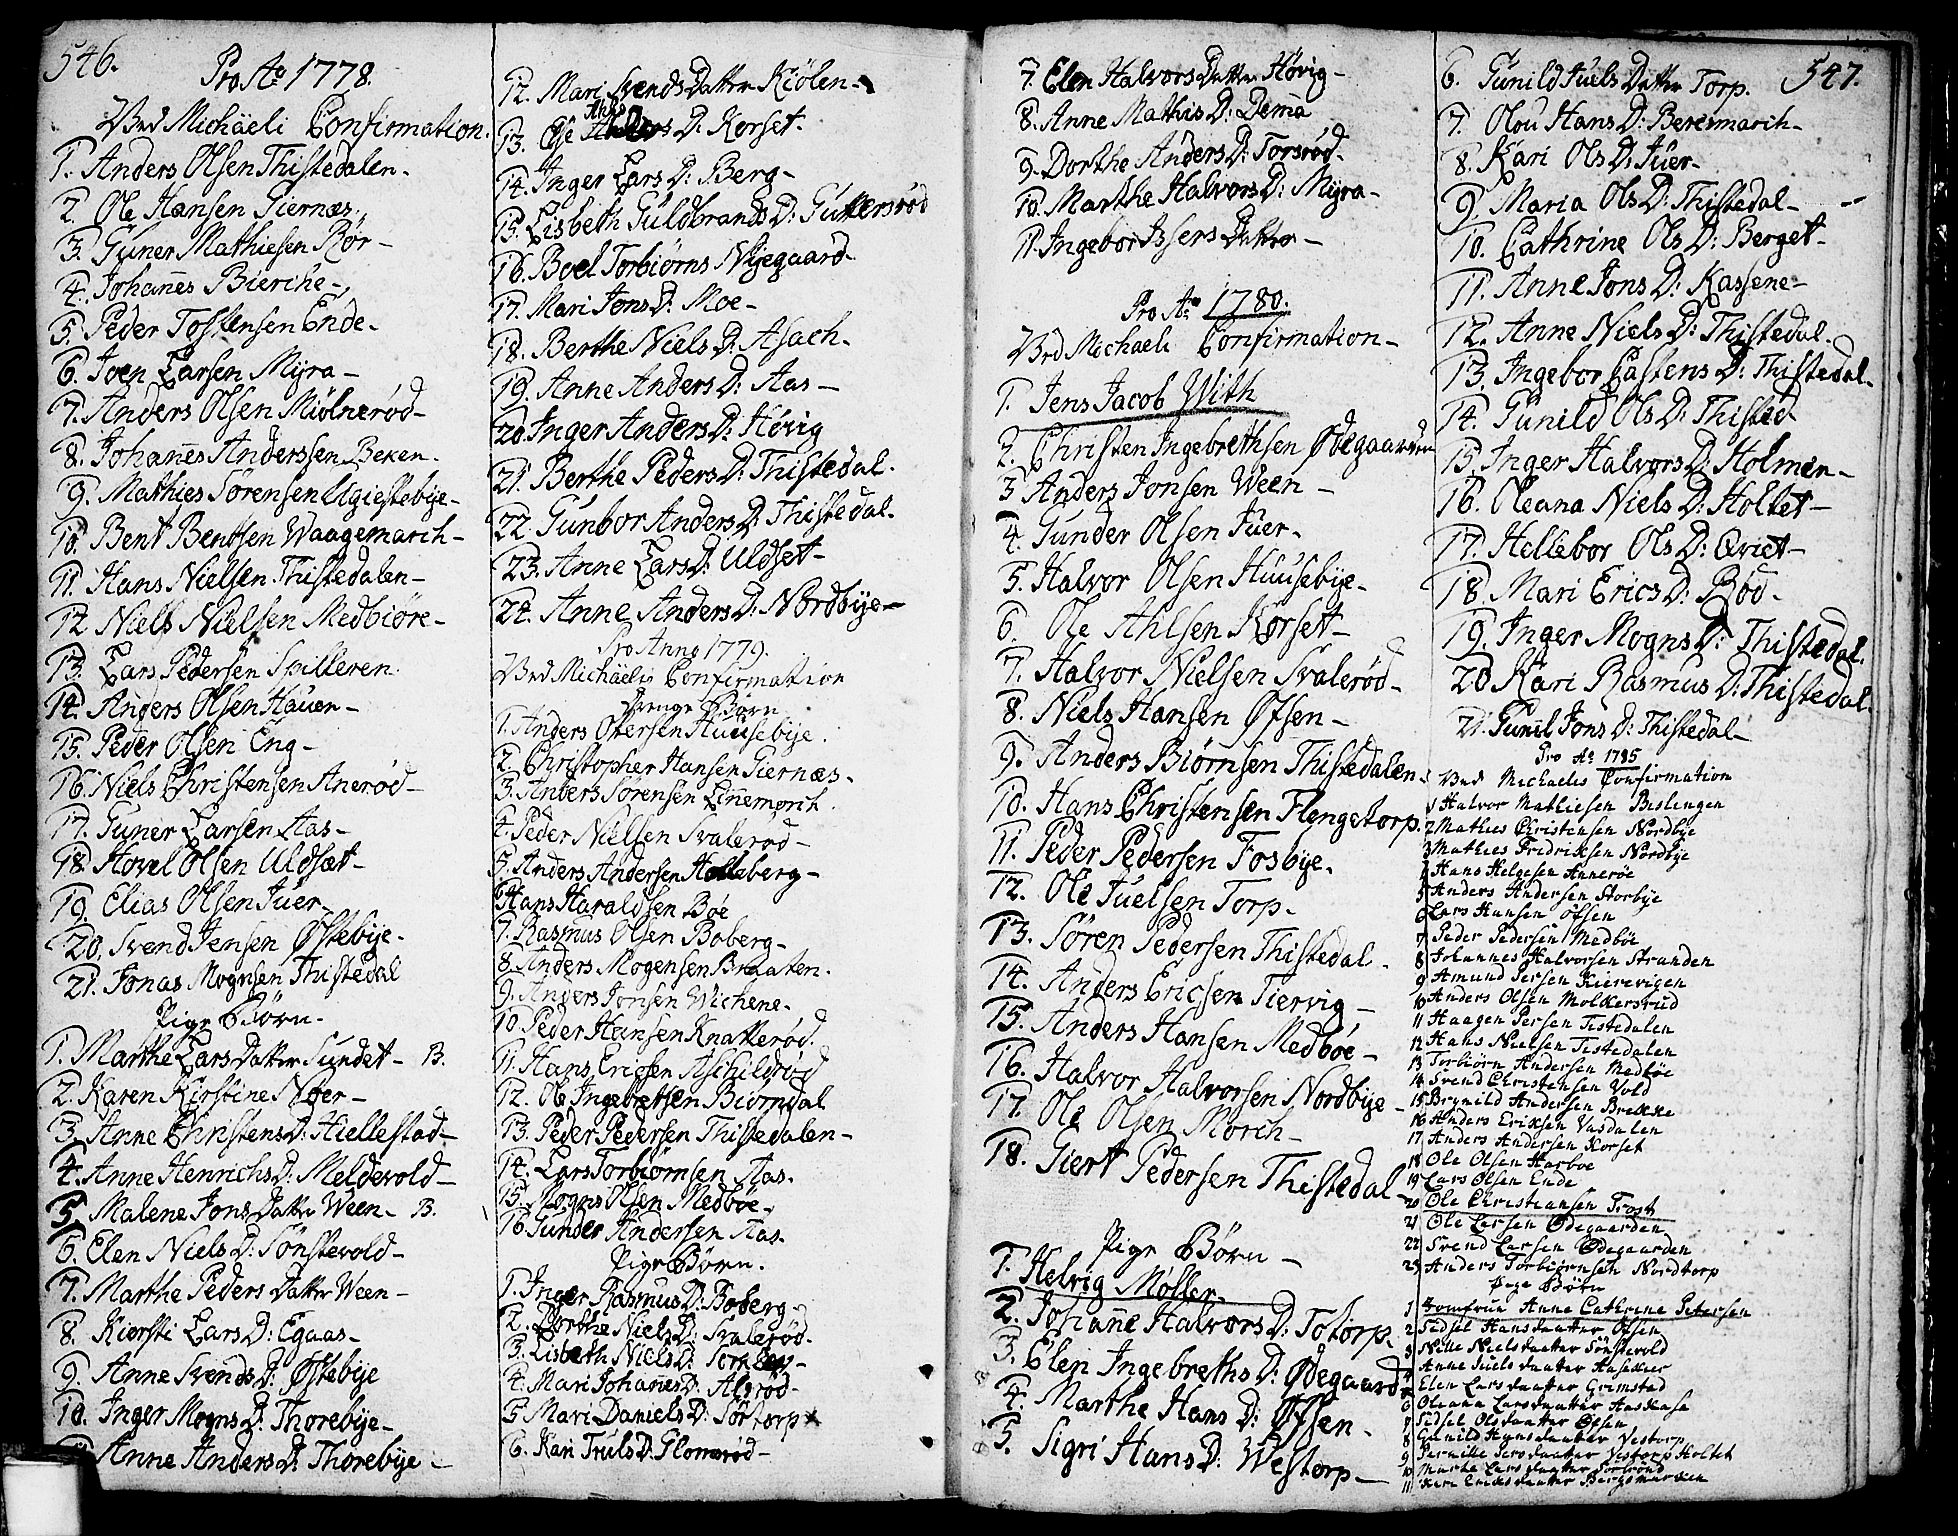 546.
Pro Ao 1778.
Ved Michäeli Confirmation.
1. Anders Olsen Thistedalen.
2. Ole Hansen Giernæs.
3. Guner Mathiesen Rør
4. Johannes Bierche
5. Peder Tostensen Ende.
6. Joen Larsen Myra
7. Anders Olsen Miølnerød
8. Johannes Anderssen Beken.
9. Mathies Sørensen
10. Bent Bentsen Waagemarch
11. Hans Nielsen Thistedalen
12 Niels Nielsen Medbiøre
13. Lars Pedersen Spilleren
14. Anders Olsen Hauen
15. Peder Olsen Eng
16. Niels Christensen Anerød
17. Guner Larsen Aas
18 Hovel Olsen Uldsæt
19. Elias Olsen Juer
20. Svend Jensen Østebije.
21. Jonas Mognsen Thistedal
Pige Børn.
1. Marthe Lars Datter Sundet B.
2. Karen Kirstine Noer
3. Anne Christens D: Hiellestad
4. Anne Henrichs D: Meldevold
5. Malene Jons Datter Ween B.
6. Elen Niels D: Sønstevold
7. Marthe Peders Datter Ween
8. Kiersti Lars D: Egaas
9. Anne Svends D: Østebije
10. Inger Mogns D: Thorebije
Anne Anders D: Thorebije
12. Mari Svends Datter Kiølen
13. D: Korset.
14. Inger Lars D: Berg
15. Lisbeth Guldbrands D: Guttersrød
16. Boel Torbiørns Nijegaard
17. Mari Jens D: Moe
18. Berthe Niels D: Asach.
19. Anne Anders D: Aas
20. Inger Anders D: Høvig
21. Berthe Peders D: Thistedal.
22. Gunbor Anders D: Thistedal.
23. Anne Lars D: Uldset
24. Anne Anders D: Nordbije
Pro Anno 1779.
Ved Michäelis Confirmation
Drenge Børn
1. Anders Ottersen Huusebije.
2. Christopher Hansen Giernæs.
3. Anders Sørensen Linemorch.
4. Peder Nielsen Svalerød
5. Anders Andersen Holleberg
6 Hans Haraldsen Bøe
7. Rasmus Olsen Boberg
8. Anders Mogensen Braaten.
9. Anders Jonsen Wichene.
10 Peder Hansen Knatterød.
11. Hans Ericsen Aschildrød
12. Ole Ingebretsen Biørndal
13. Peder Pedersen Thistedalen
14. Lars Torbiørnsen Aas.
15. Mogns Olsen Medbøe
16. Gunder Andersen Aas.
Pige Børn.
1. Inger Rasmus D: Boberg
2. Dorthe Niels D: Svalerød.
3. Lisbeth Niels D:
4. Mari Johannes D: Alsrød
5 Mari Daniels D: Sørtorp
6. Kari Truls D: Glomerød
7. Elen Halvors Datter Høvig
8. Anne Mathis D: Dema
9. Dorthe Anders D: Torsrød.
10. Marthe Halvors D: Myra
11. Ingebor Issers Datter
Pro Ao 1780.
Ved Michaeli Confirmation
1. Jens Jacob With
2. Christen Ingebrethsen Ødegaarden
3 Anders Jonsen Ween
4. Gunder Olsen Juer
5. Halvor Olsen Huusebije
6. Ole Ahlsen Korset
7. Halvor Nielsen Svalerød
8. Niels Hansen Øfsen
9. Anders Biørnsen Thistedalen
10. Hans Christensen Flengetorp.
11. Peder Pedersen Fosbije.
12. Ole Juelsen Torp.
13. Søren Pedersen Thistedal.
14. Anders Ericsen Tiervig
15. Anders Hansen Medbøe
16. Halvor Halvorsen Nordbije
17. Ole Olsen Morch
18. Giert Pedersen Thistedal
Pige Børn
1. Helvig Møller
2. Johanne Halvors D: Totorp.
3. Elen Ingebreths D: Ødegaard
4. Marthe Hans D: Øfsen.
5. Sigri Hans D: Westorp
547.
6. Gunild Juels Datter Torp.
7. Olou Hans D: Beresmarch
8. Kari Ols D: Juer
9. Maria Ols D: Thistedal
10. Cathrine Ols D: Berget
11. Anne Jons D: Kassene
12. Anne Niels D: Thistedal.
13. Ingebor Castens D: Thistedal.
14. Gunild Ols D: Thisted
15. Inger Halvors D: Holmen
16. Oleana Niels D: Holtet
17. Hellebor Ols D: Qviet
18. Mari Erics D: Bød
19. Inger Mogns D: Thistedal.
20 Kari Rasmus D: Thistedal.
21. Gunil Jons D: Thistedal
Pro Ao 1785
Ved Michaelis Confirmation
1 Halvor Mathiesen Bislingen
2 Mathies Christensen Nordbye
3 Mathies Fridriksen Nordbye
4 Hans Helgesen Annerøe
5 Anders Andersen Storbye
6 Lars Hansen Øfsen
7 Peder Pedersen Medbøe
8 Johannes Halvorsen Stranden
9 Amund Persen Kierevigen
10 Anders Olsen Molkersrud
11 Haagen Persen Tistedalen
12 Hans Nielsen Tistedalen
13 Torbiørn Andersen Medbøe
14 Svend Christensen Vold
15 Brynild Andersen Brekke
16 Anders Eriksen Vasdalen
17 Anders Andersen Korset
18 Ole Olsen Harboe
19 Lars Olsen Ende
20 Ole Christiansen Trost
21 Ole Larsen Ødegaarden
22 Svend Larsen Ødegaarden
23 Anders Torbiørnsen Nordtorp
Pige Børn
1 Jomfrue Anne Cathrine Petersen
2 Sidsel Hansdaatter Øfsen
3 Nille Nielsdaatter Sønstevold
4 Anne Nielsdaatter
5 Elen Larsdaatter Grimstad
6 Oleana Larsdaatter
7 Sidsel Olsdaatter Øfsen
8 Gunild Hansdaatter Vestorp
9 Pernille Persdaatter Vestorp Holtet
10 Marte Larsdaatter
11 Kari Eriksdaatter Bergsmarken